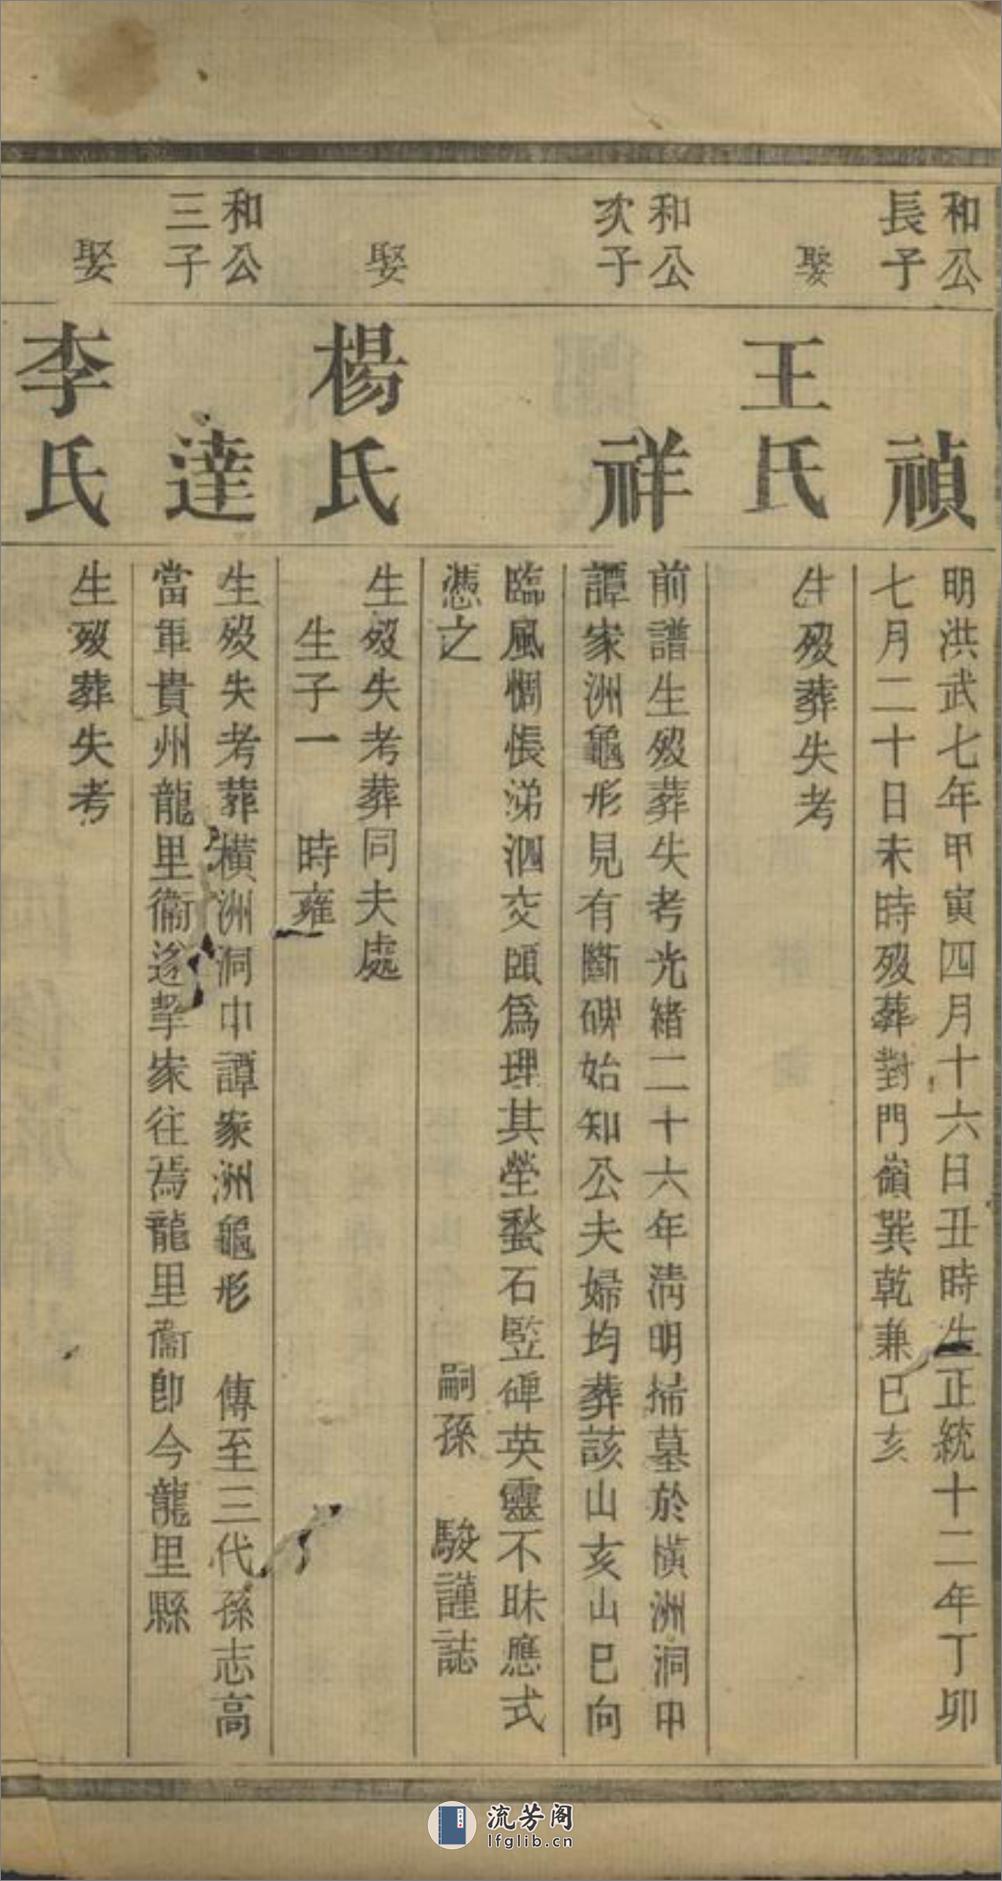 和公
長子
禎
明洪武七年甲寅四月十六日丑時生正統十二年丁卯
七月二十日未時歿葬對門嶺巽乾兼巳亥
娶
王氏
生歿葬失考
和公
次子
祥
前譜生歿葬失考光緒二十六年清明掃墓於橫洲洞中
譚家洲龜形見有斷碑始知公夫婦均葬該山亥山巳向
臨風惆悵涕泗交頤爲理其塋甃石竪碑英靈不昧應式
憑之 嗣孫 駿謹誌
娶
楊氏
生歿失考葬同夫處
生子一 時雍
和公
三子
達
生歿失考葬橫洲洞中譚家洲龜形 傳至三代孫志高
當軍貴州龍里衛遂挈家往焉龍里衛即今龍里縣
娶
李氏
生歿葬失考
流芳阁
lfglib.cn